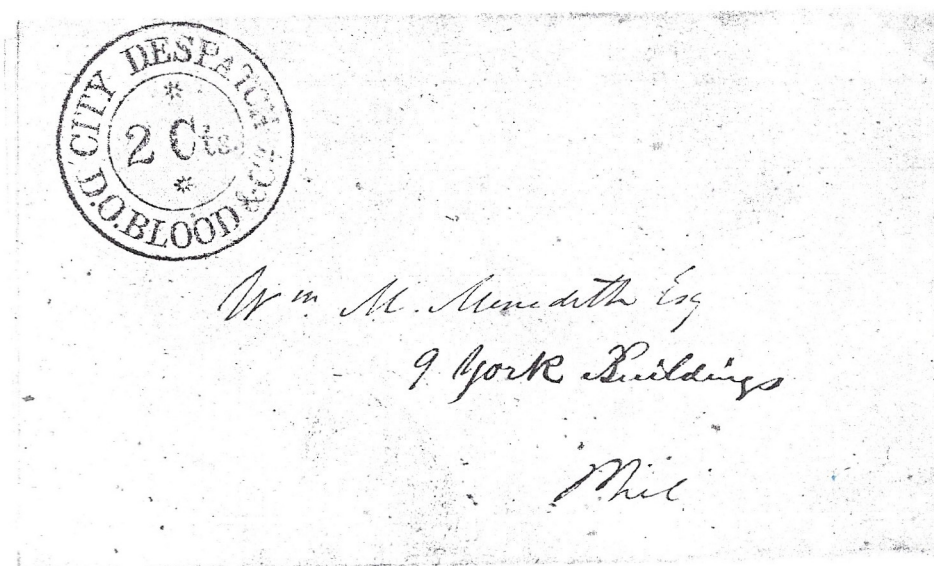 CITY DESPATCH
* 2 Cts. *
D.O. BLOOD & Co.
Wm. M. Meredith Esq
9 York Buildings
Phil